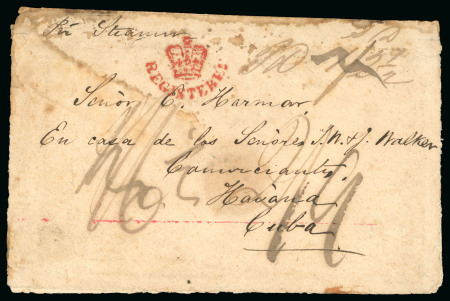 Per Steamer
REGISTERED
Señor E. Harmar
En casa de los Señores J. N. & J. Walker
Comerciantes.
Havana
Cuba